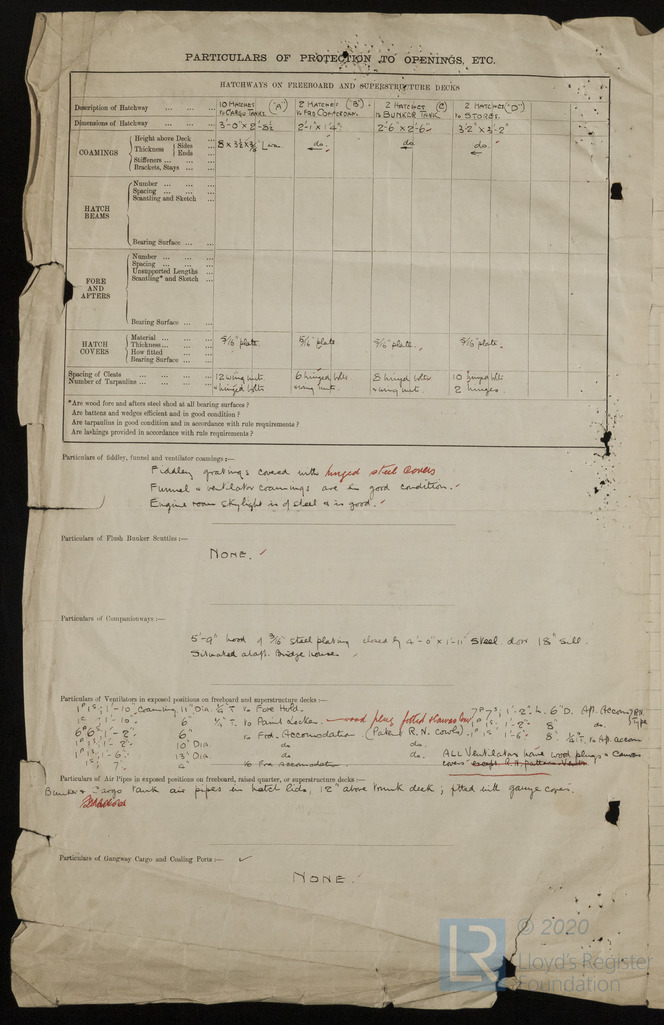 PARTICULARS OF PROTECTION TO OPENINGS, ETC.
HATCHWAYS ON FREEBOARD AND SUPERSTRUCTURE DECKS
Description of Hatchway ... ... ... 10 HATCHES ("A") to CARGO TANKS 2 HATCHES ("B") to FRD COFFERDAM. 2 HATCHES (C) to BUNKER TANK 2 HATCHES ("D") to STORES.
Dimensions of Hatchway ... ... ... 3'-0" x 2'-8½ 2'-1" x 1'4" 2'-6" x 2'-6" 3'-2" x 3'-2"
COAMINGS
Height above Deck ... 8 x 3½ x do. do. do.
Thickness { Sides ...
Ends ...
Stiffeners ... ... ...
Brackets, Stays ... ...
HATCH BEAMS
Number ... ... ...
Spacing ... ... ...
Scantling and Sketch ...
Bearing Surface ... ...
FORE AND AFTERS
Number ... ... ...
Spacing ... ... ...
Unsupported Lengths ...
Scantling* and Sketch ...
Bearing Surface ... ...
HATCH COVERS
Material ... ... ... 5/16" plate. 5/16" plate 5/16" plate. 5/16" plate.
Thickness ... ... ...
How fitted ... ...
Bearing Surface ... ...
Spacing of Cleats ... ... ... ... 12 wing nuts 6 hinged bolts 8 hinged bolts 10 hinged bolts
Number of Tarpaulins ... ... ... ... & hinged bolts & wing nuts. & wing nuts. 2 hinges
*Are wood fore and afters steel shod at all bearing surfaces?
Are battens and wedges efficient and in good condition?
Are tarpaulins in good condition and in accordance with rule requirements?
Are lashings provided in accordance with rule requirements?
Particulars of fiddley, funnel and ventilator coamings:—
Fiddley gratings covered with hinged steel covers
Funnel & ventilator coamings are in good condition.
Engine room skylight is of steel & is good.
Particulars of Flush Bunker Scuttles:—
NONE.
Particulars of Companionways:—
5'-9" hood of 3/16" steel plating closed by 4'-0" x 1'-11" steel door 18" sill.
Situated abaft Bridge house.
Particulars of Ventilators in exposed positions on freeboard and superstructure decks:—
1'-10" Coaming, 11" Dia. ¼" T. to Fore Hold. 1'-2" h. 6" D. Aft. Accom
1'-10" 6" ¼" T. to Paint Locker. wood plug fitted 1'-2" 8" do. Type
1'-2" 6" to Fwd. Accomodation (Patent R.N. Cowls) 1'-6" 8" ¼" T. to Aft. accom
1'-2" 10" Dia. do do.
1'-6" 13" Dia. do do. ALL Ventilators have wood plugs & Canvas
7" 4" to Fwd Accomodation. covers except R.N. pattern Vents
Particulars of Air Pipes in exposed positions on freeboard, raised quarter, or superstructure decks:—
Bunker & Cargo tank air pipes in hatch lids, 12" above trunk deck; fitted with gauze covers.
Particulars of Gangway Cargo and Coaling Ports:—
NONE.
© 2020
LR
Lloyd's Register
Foundation